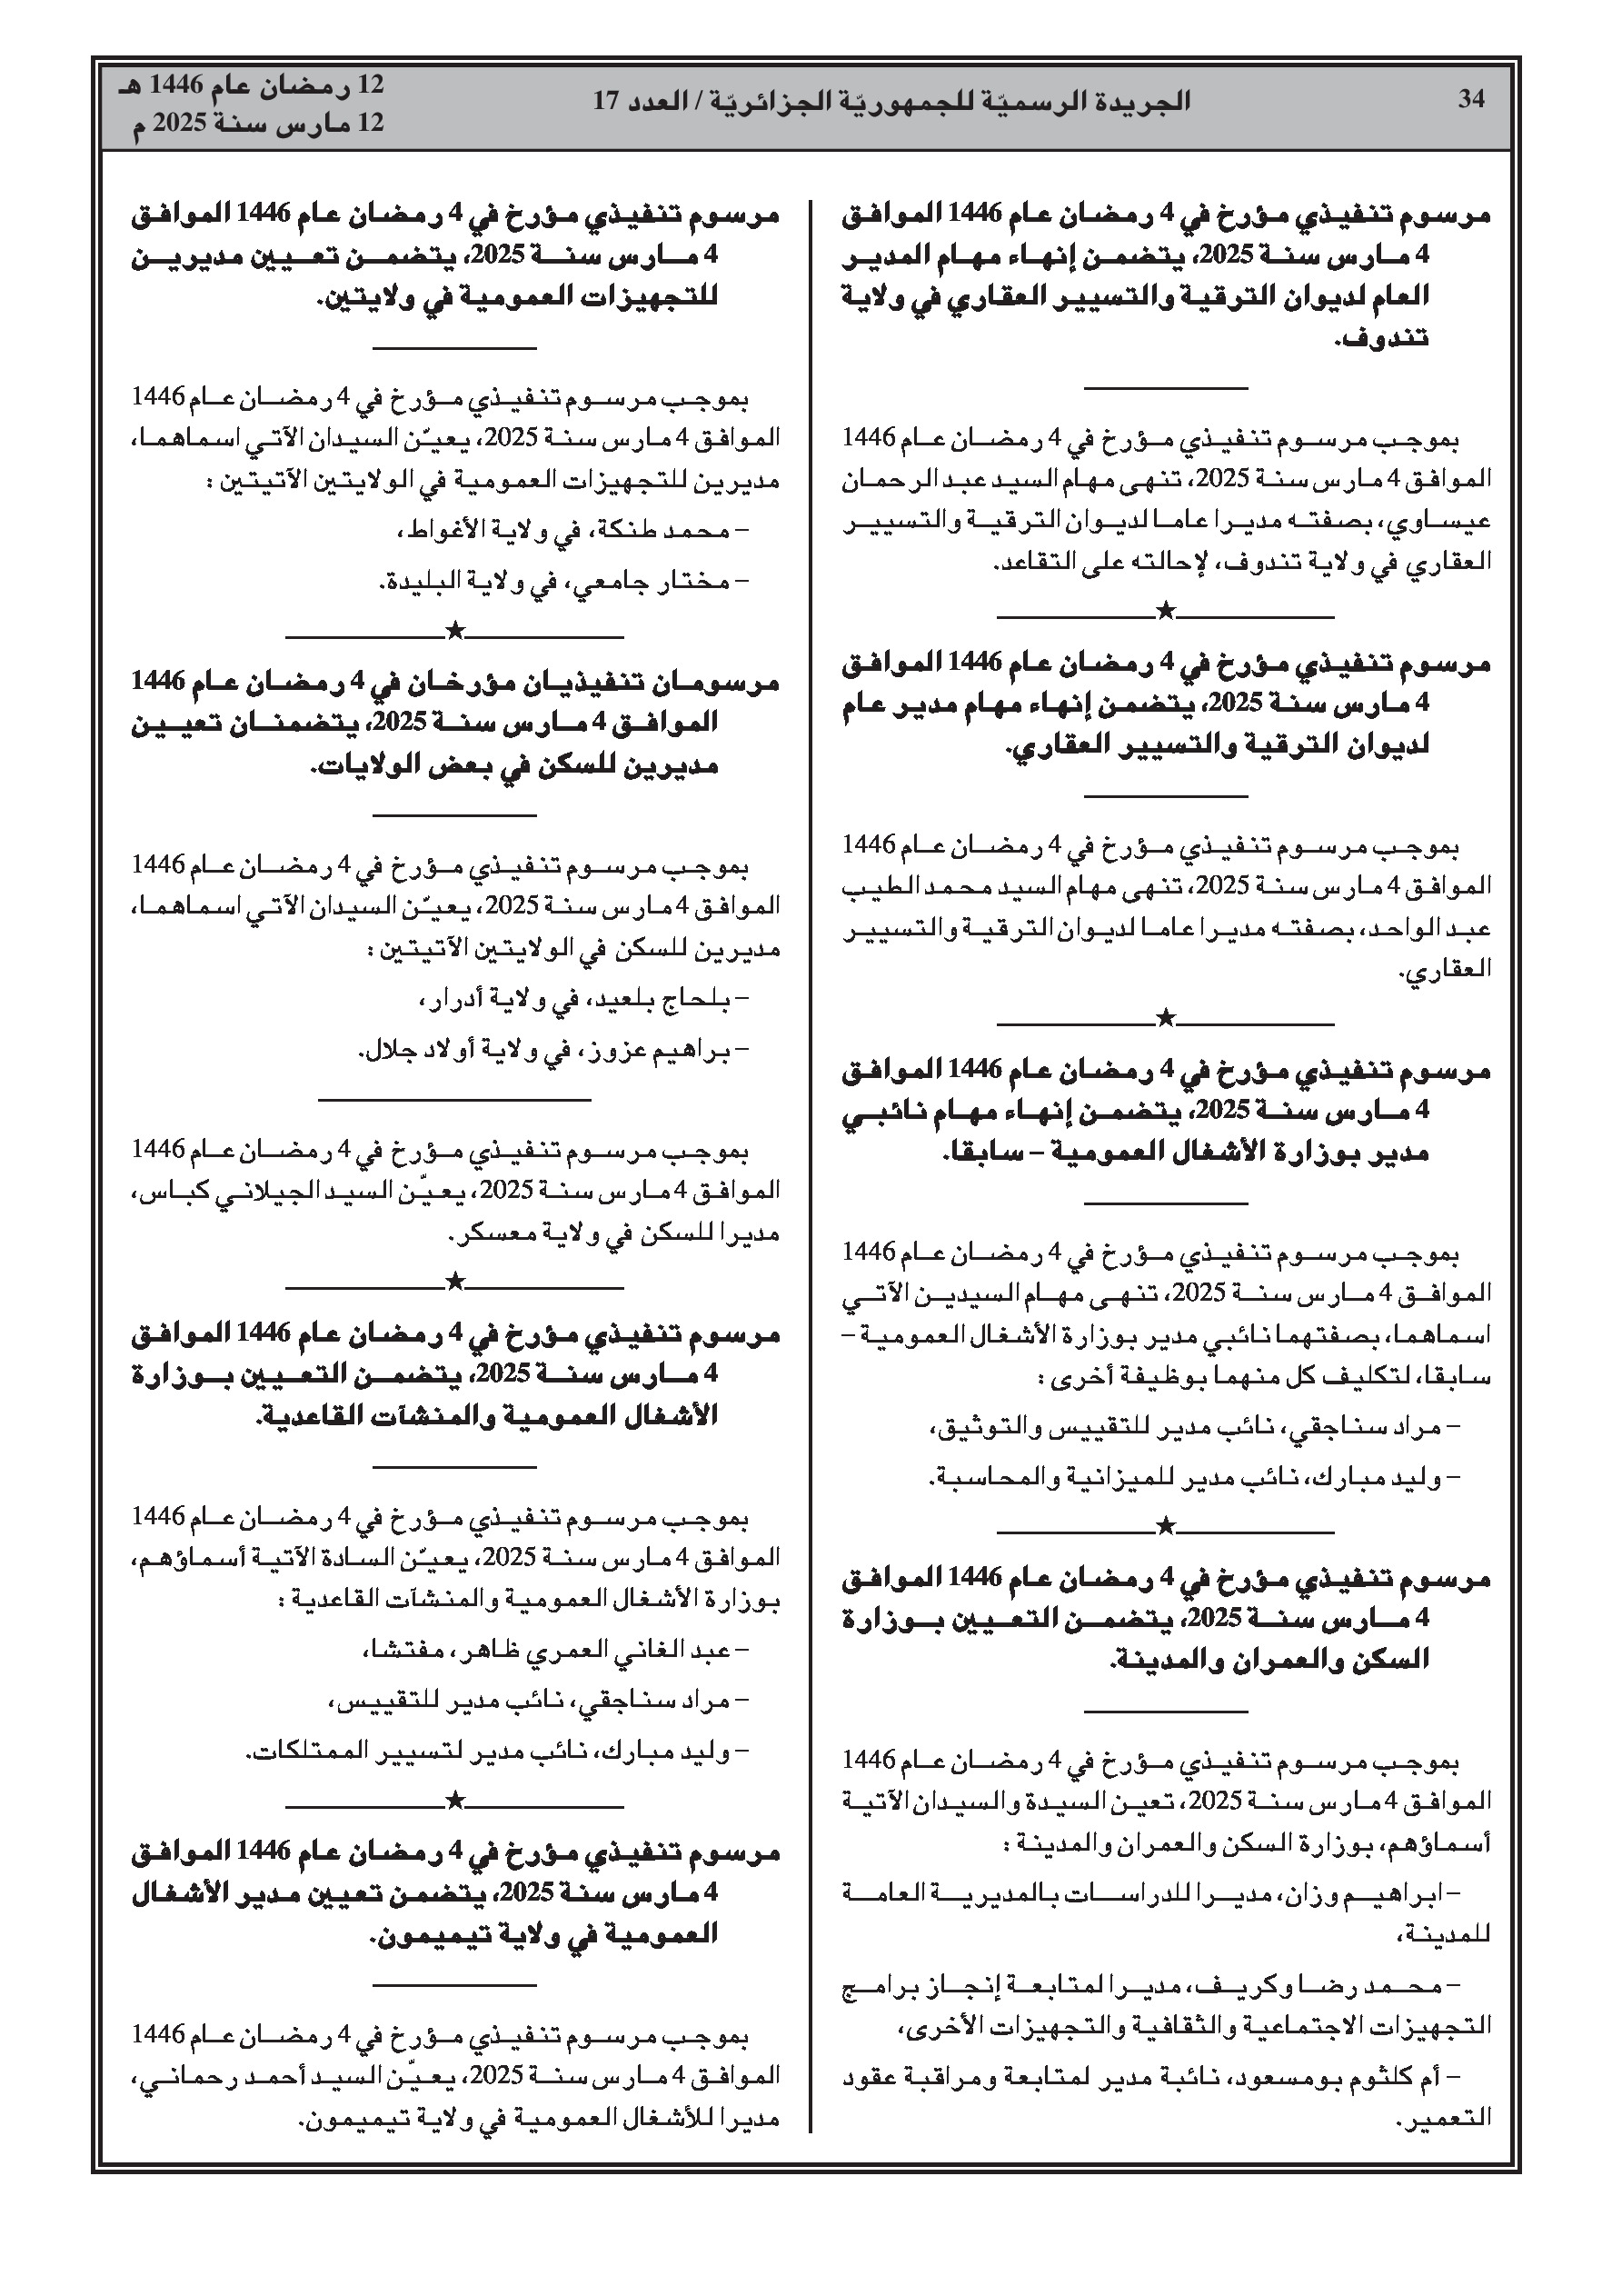 34
الجريدة الرسميّة للجمهوريّة الجزائريّة / العدد 17
12 رمضان عام 1446 هـ
12 مارس سنة 2025 م
مرسوم تنفيذي مؤرخ في 4 رمضان عام 1446 الموافق
4 مارس سنة 2025، يتضمن إنهاء مهام المدير
العام لديوان الترقية والتسيير العقاري في ولاية
تندوف.
بموجب مرسوم تنفيذي مؤرخ في 4 رمضان عام 1446
الموافق 4 مارس سنة 2025، تنهى مهام السيد عبد الرحمان
عيساوي، بصفته مديرا عاما لديوان الترقية والتسيير
العقاري في ولاية تندوف، لإحالته على التقاعد.
★
مرسوم تنفيذي مؤرخ في 4 رمضان عام 1446 الموافق
4 مارس سنة 2025، يتضمن إنهاء مهام مدير عام
لديوان الترقية والتسيير العقاري.
بموجب مرسوم تنفيذي مؤرخ في 4 رمضان عام 1446
الموافق 4 مارس سنة 2025، تنهى مهام السيد محمد الطيب
عبد الواحد، بصفته مديرا عاما لديوان الترقية والتسيير
العقاري.
★
مرسوم تنفيذي مؤرخ في 4 رمضان عام 1446 الموافق
4 مارس سنة 2025، يتضمن إنهاء مهام نائبي
مدير بوزارة الأشغال العمومية – سابقا.
بموجب مرسوم تنفيذي مؤرخ في 4 رمضان عام 1446
الموافق 4 مارس سنة 2025، تنهى مهام السيدين الآتي
اسماهما، بصفتهما نائبي مدير بوزارة الأشغال العمومية –
سابقا، لتكليف كل منهما بوظيفة أخرى :
– مراد سناجقي، نائب مدير للتقييس والتوثيق،
– وليد مبارك، نائب مدير للميزانية والمحاسبة.
★
مرسوم تنفيذي مؤرخ في 4 رمضان عام 1446 الموافق
4 مارس سنة 2025، يتضمن التعيين بوزارة
السكن والعمران والمدينة.
بموجب مرسوم تنفيذي مؤرخ في 4 رمضان عام 1446
الموافق 4 مارس سنة 2025، تعين السيدة والسيدان الآتية
أسماؤهم، بوزارة السكن والعمران والمدينة :
– ابراهيم وزان، مديرا للدراسات بالمديرية العامة
للمدينة،
– محمد رضا وكريف، مديرا لمتابعة إنجاز برامج
التجهيزات الاجتماعية والثقافية والتجهيزات الأخرى،
– أم كلثوم بومسعود، نائبة مدير لمتابعة ومراقبة عقود
التعمير.
مرسوم تنفيذي مؤرخ في 4 رمضان عام 1446 الموافق
4 مارس سنة 2025، يتضمن تعيين مديرين
للتجهيزات العمومية في ولايتين.
بموجب مرسوم تنفيذي مؤرخ في 4 رمضان عام 1446
الموافق 4 مارس سنة 2025، يعيّن السيدان الآتي اسماهما،
مديرين للتجهيزات العمومية في الولايتين الآتيتين :
– محمد طنكة، في ولاية الأغواط،
– مختار جامعي، في ولاية البليدة.
★
مرسومان تنفيذيان مؤرخان في 4 رمضان عام 1446
الموافق 4 مارس سنة 2025، يتضمنان تعيين
مديرين للسكن في بعض الولايات.
بموجب مرسوم تنفيذي مؤرخ في 4 رمضان عام 1446
الموافق 4 مارس سنة 2025، يعيّن السيدان الآتي اسماهما،
مديرين للسكن في الولايتين الآتيتين :
– بلحاج بلعيد، في ولاية أدرار،
– براهيم عزوز، في ولاية أولاد جلال.
بموجب مرسوم تنفيذي مؤرخ في 4 رمضان عام 1446
الموافق 4 مارس سنة 2025، يعيّن السيد الجيلاني كباس،
مديرا للسكن في ولاية معسكر.
★
مرسوم تنفيذي مؤرخ في 4 رمضان عام 1446 الموافق
4 مارس سنة 2025، يتضمن التعيين بوزارة
الأشغال العمومية والمنشآت القاعدية.
بموجب مرسوم تنفيذي مؤرخ في 4 رمضان عام 1446
الموافق 4 مارس سنة 2025، يعيّن السادة الآتية أسماؤهم،
بوزارة الأشغال العمومية والمنشآت القاعدية :
– عبد الغاني العمري ظاهر، مفتشا،
– مراد سناجقي، نائب مدير للتقييس،
– وليد مبارك، نائب مدير لتسيير الممتلكات.
★
مرسوم تنفيذي مؤرخ في 4 رمضان عام 1446 الموافق
4 مارس سنة 2025، يتضمن تعيين مدير الأشغال
العمومية في ولاية تيميمون.
بموجب مرسوم تنفيذي مؤرخ في 4 رمضان عام 1446
الموافق 4 مارس سنة 2025، يعيّن السيد أحمد رحماني،
مديرا للأشغال العمومية في ولاية تيميمون.